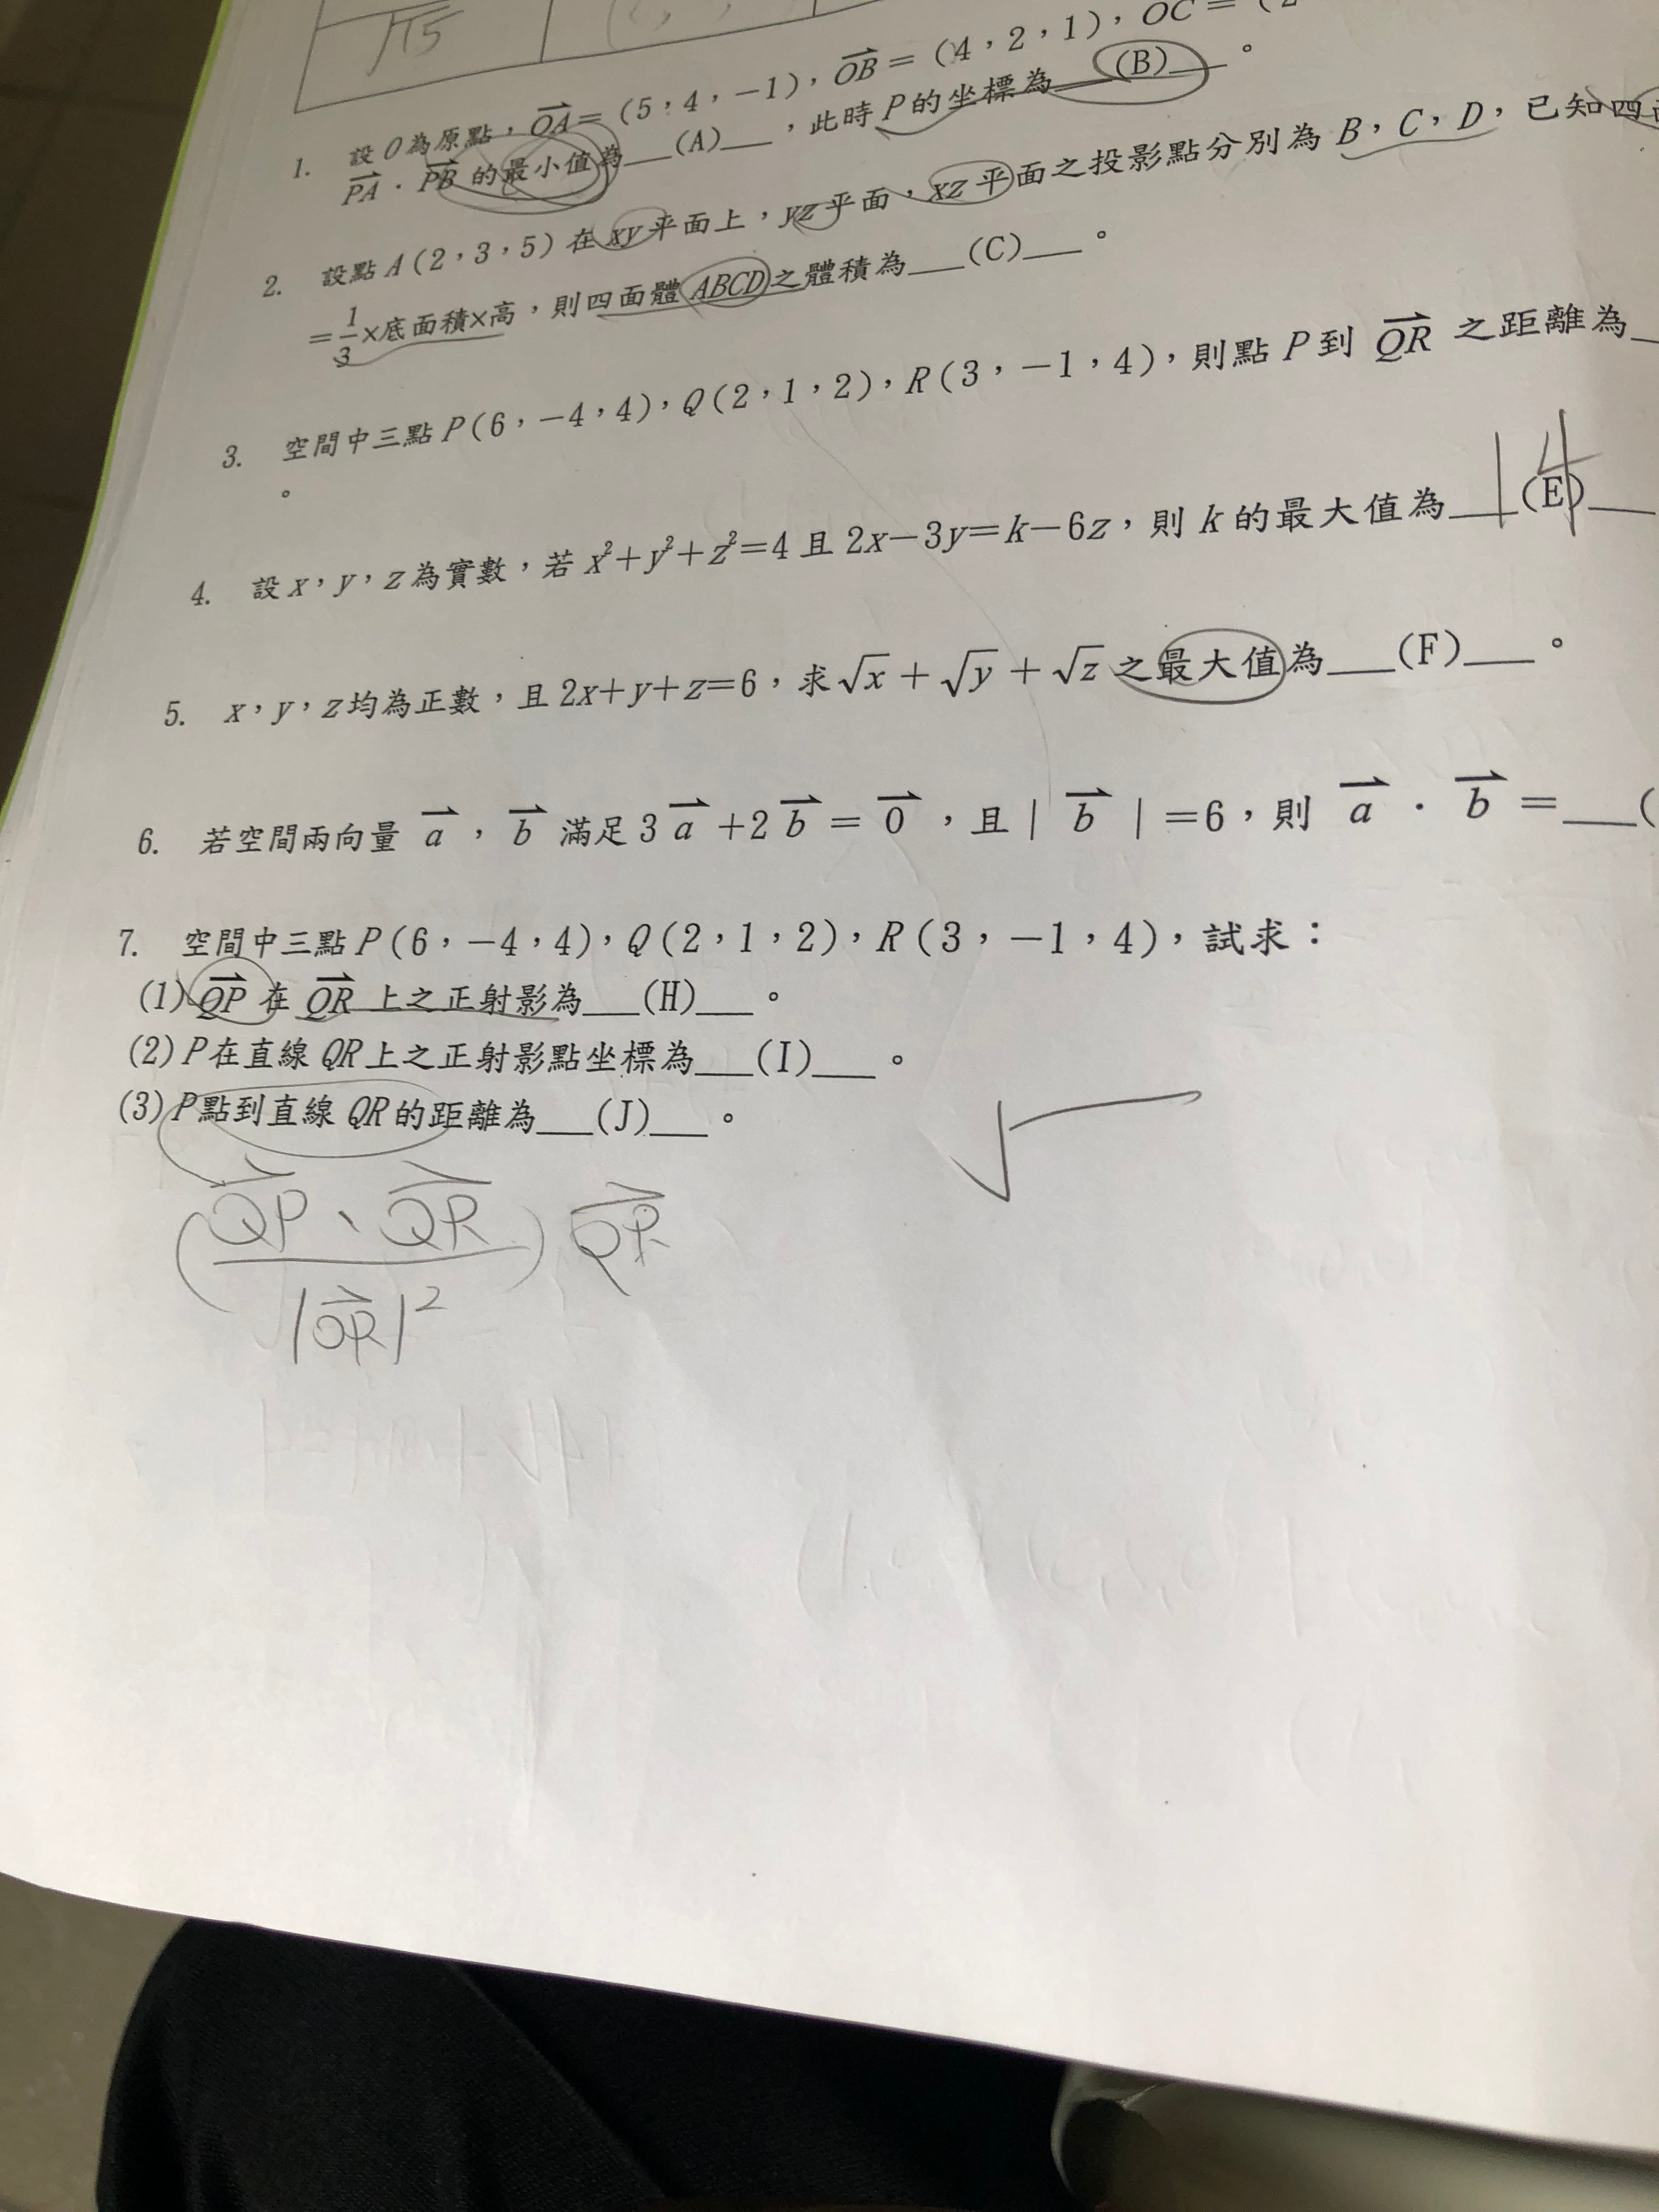 √15
1. 設O為原點，OA=(5，4，−1)，OB=(4，2，1)，OC=(2
PA．PB的最小值為___(A)___，此時P的坐標為___(B)___。
2. 設點A(2，3，5)在xy平面上，yz平面，xz平面之投影點分別為B，C，D，已知四面
=1/3×底面積×高，則四面體ABCD之體積為___(C)___。
3. 空間中三點P(6，−4，4)，Q(2，1，2)，R(3，−1，4)，則點P到QR之距離為_
。
14
4. 設x，y，z為實數，若x²+y²+z²=4且2x−3y=k−6z，則k的最大值為___(E)___
5. x，y，z均為正數，且2x+y+z=6，求√x+√y+√z之最大值為___(F)___。
6. 若空間兩向量a，b滿足3a+2b=0，且|b|=6，則a．b=___(
7. 空間中三點P(6，−4，4)，Q(2，1，2)，R(3，−1，4)，試求：
(1)QP在QR上之正射影為___(H)___。
(2)P在直線QR上之正射影點坐標為___(I)___。
(3)P點到直線QR的距離為___(J)___。
√
(QP、QR / |QR|²) QR